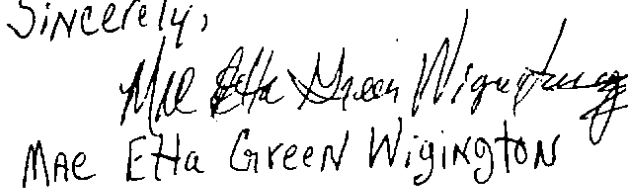 Sincerely,
Mae Etta Green Wigington
Mae Etta Green Wigington